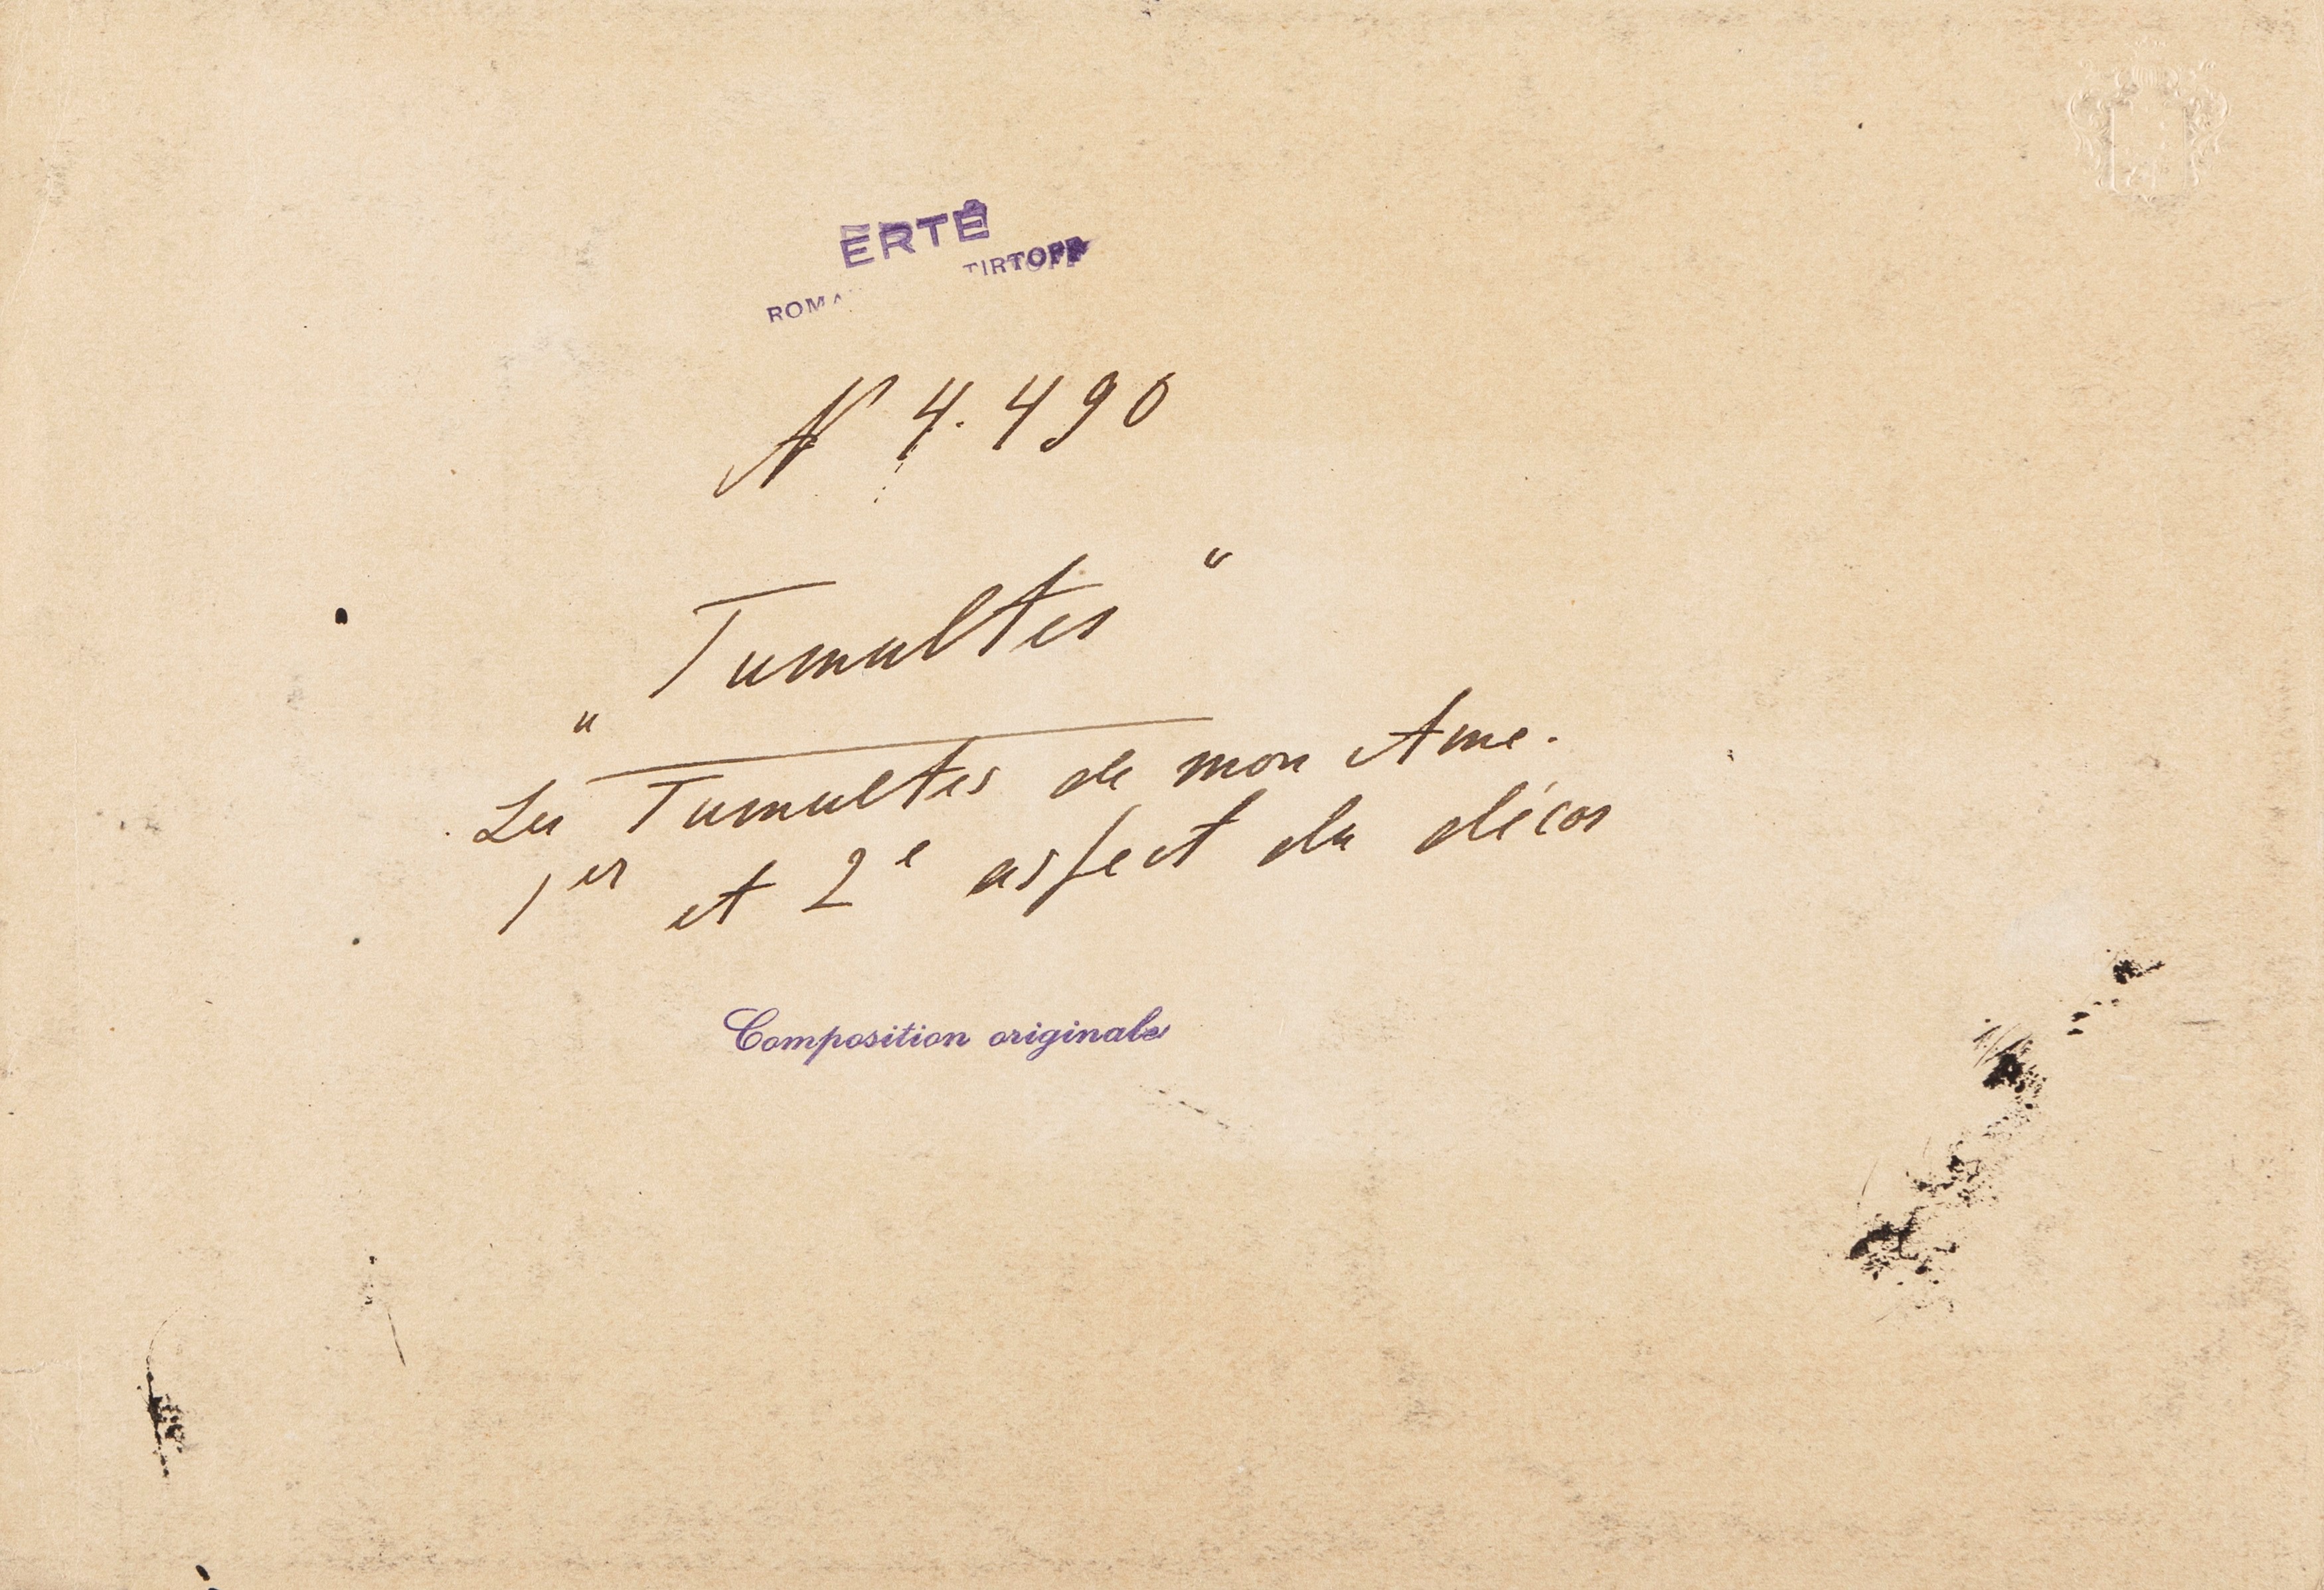 ERTÉ
ROMA TIRTOFF
N 4.490
"Tumultes"
Les Tumultes de mon Ame.
1er et 2e aspect du décor
Composition originale